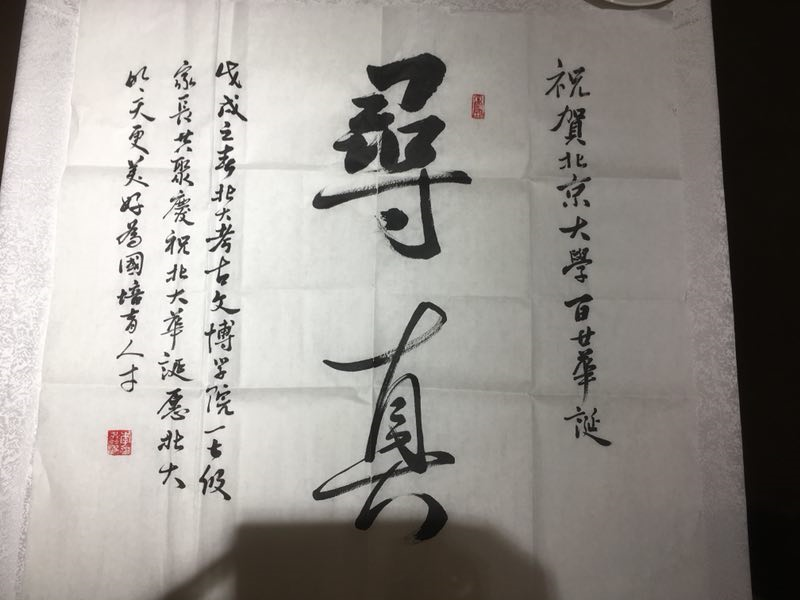 祝賀北京大學百廿華誕
尋真
戊戌之春北大考古文博学院一七级
家長共聚慶祝北大華誕愿北大
明天更美好為國培育人才